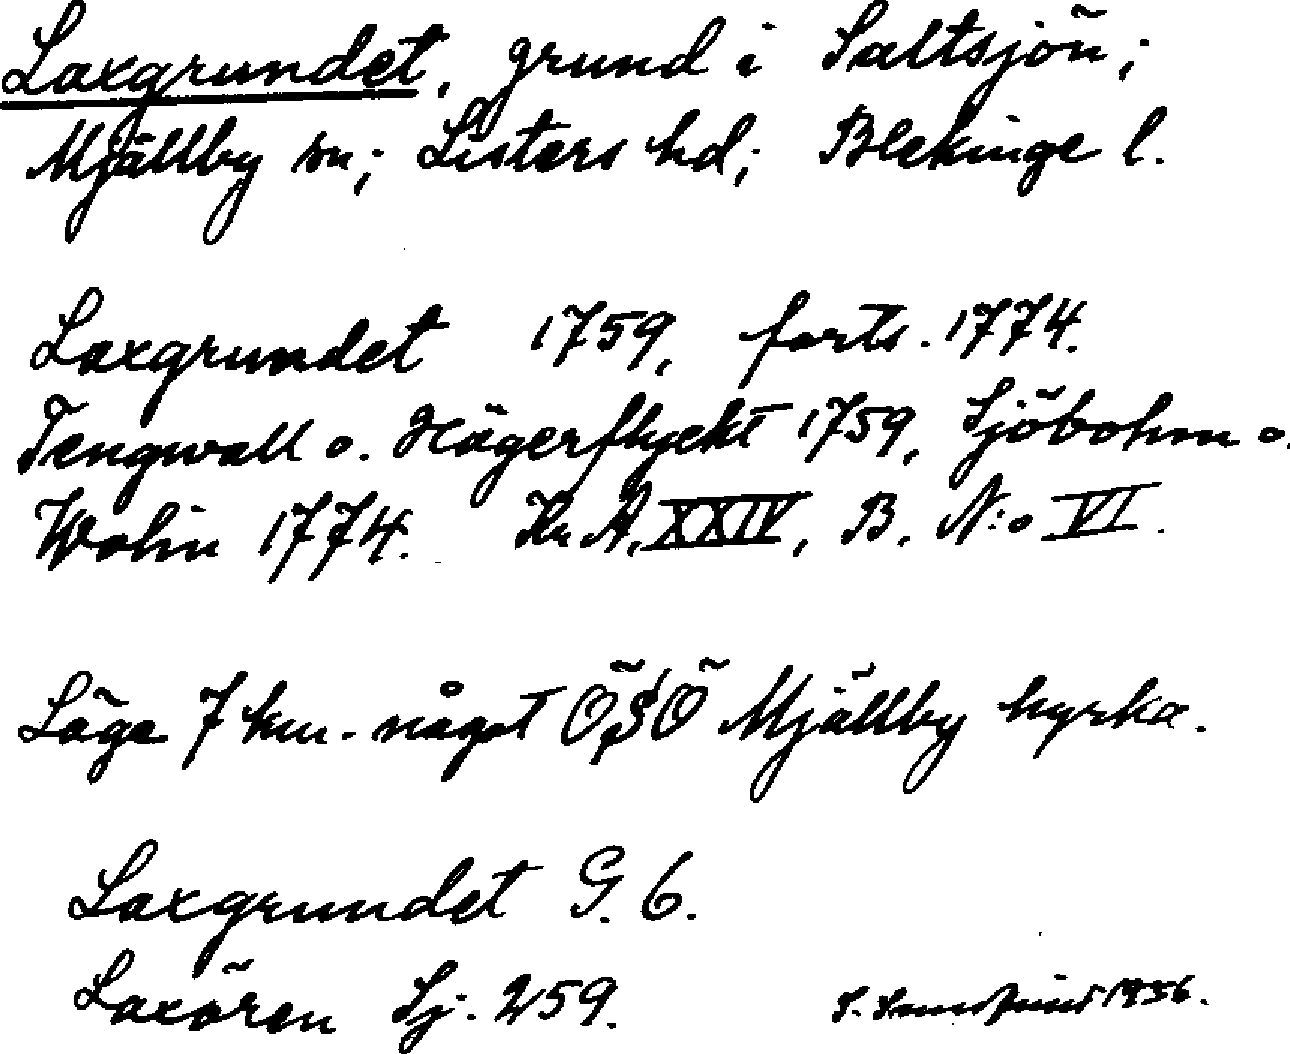 Laxgrundet, grund i Saltsjön;
Mjällby sn; Listers hd; Blekinge l.
Laxgrundet 1759, forts. 1774.
Tengwall o. Hägerflycht 1759, Sjöbohm o.
Wohin 1774. Kr.A. XXIV, B. N:o VI.
Läge 7 km. något ÖSÖ Mjällby kyrka.
Laxgrundet G. 6.
Laxören Sj. 259.
S. 1936.